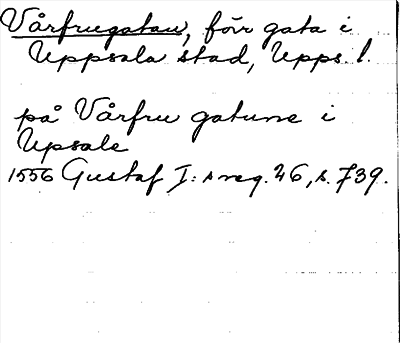 Vårfrugatan, förr gata i
Uppsala stad, Upps. l.
på Vårfru gatune i
Upsale
1556 Gustaf I:s reg. 26, s. 739.